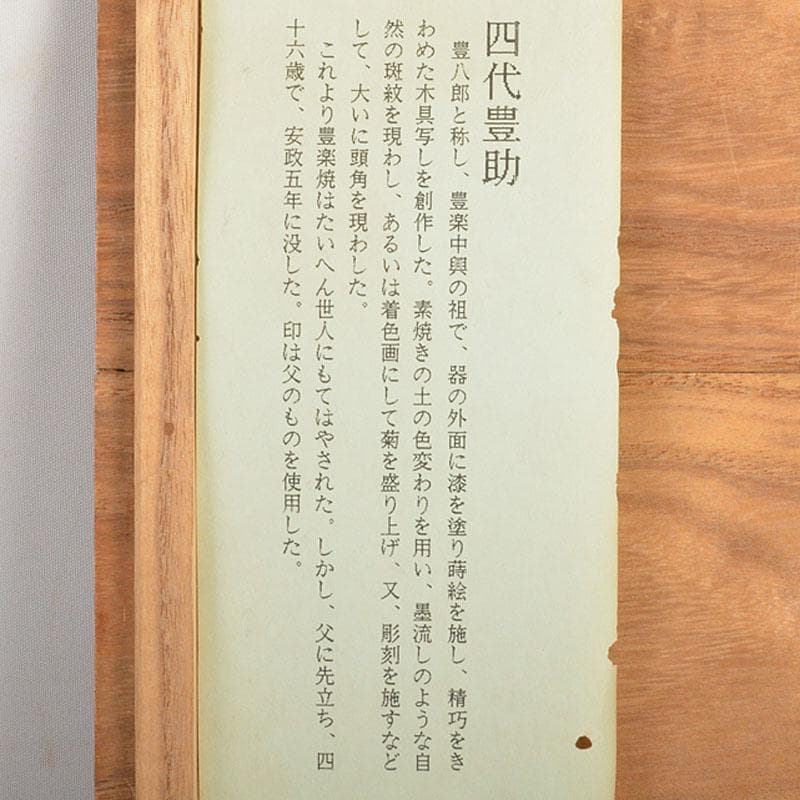 四代豊助
豊八郎と称し、豊楽中興の祖で、器の外面に漆を塗り蒔絵を施し、精巧をき
わめた木具写しを創作した。素焼きの土の色変わりを用い、墨流しのような自
然の斑紋を現わし、あるいは着色画にして菊を盛り上げ、又、彫刻を施すなど
して、大いに頭角を現わした。
これより豊楽焼はたいへん世人にもてはやされた。しかし、父に先立ち、四
十六歳で、安政五年に没した。印は父のものを使用した。